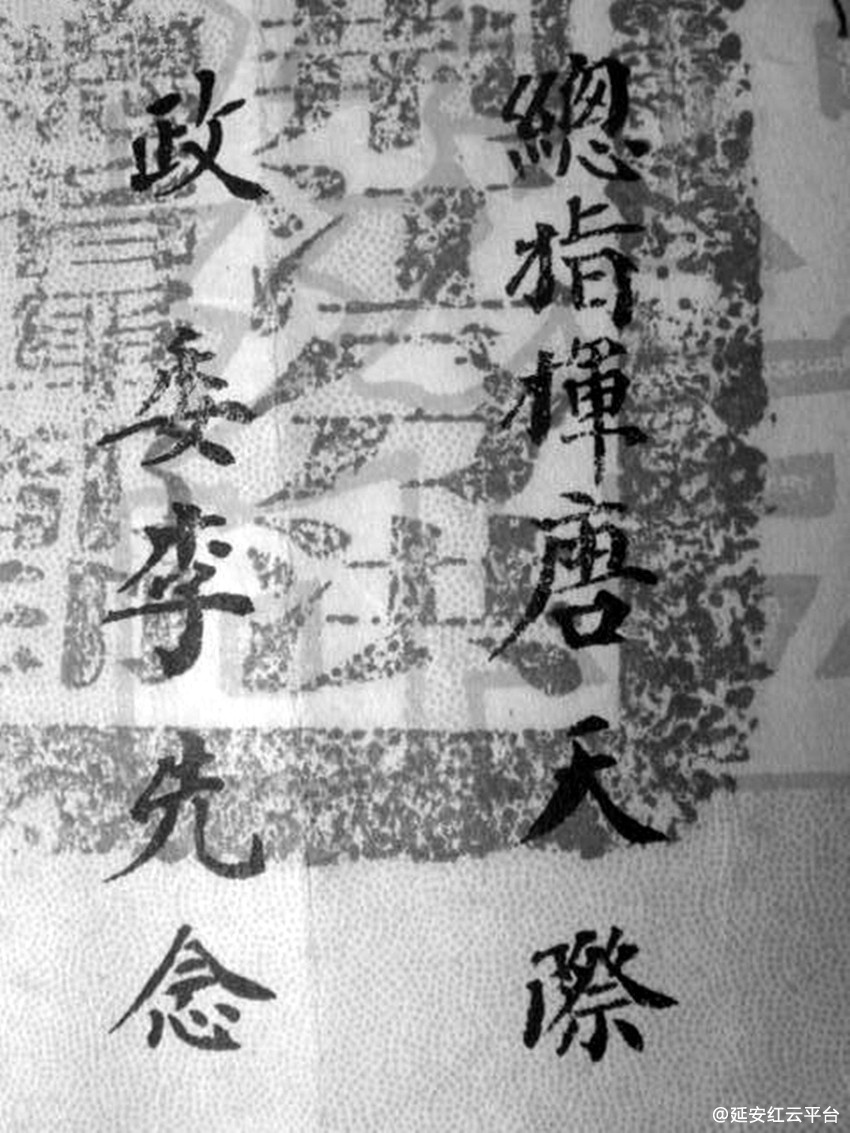 總指揮唐天際
政委李先念
@延安红云平台